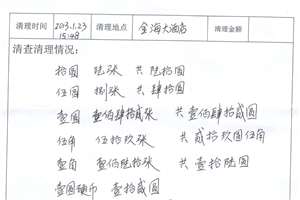 清理时间 2013.1.23 15:48 清理地点 金海大酒店 清理金额
清查清理情况:
拾圆 陆张 共陆拾圆
伍圆 捌张 共肆拾圆
壹圆 壹佰肆拾贰张 共壹佰肆拾贰圆
伍角 伍拾玖张 共贰拾玖圆伍角
壹角 壹佰陆拾张 共壹拾陆圆
壹圆硬币 壹拾贰圆